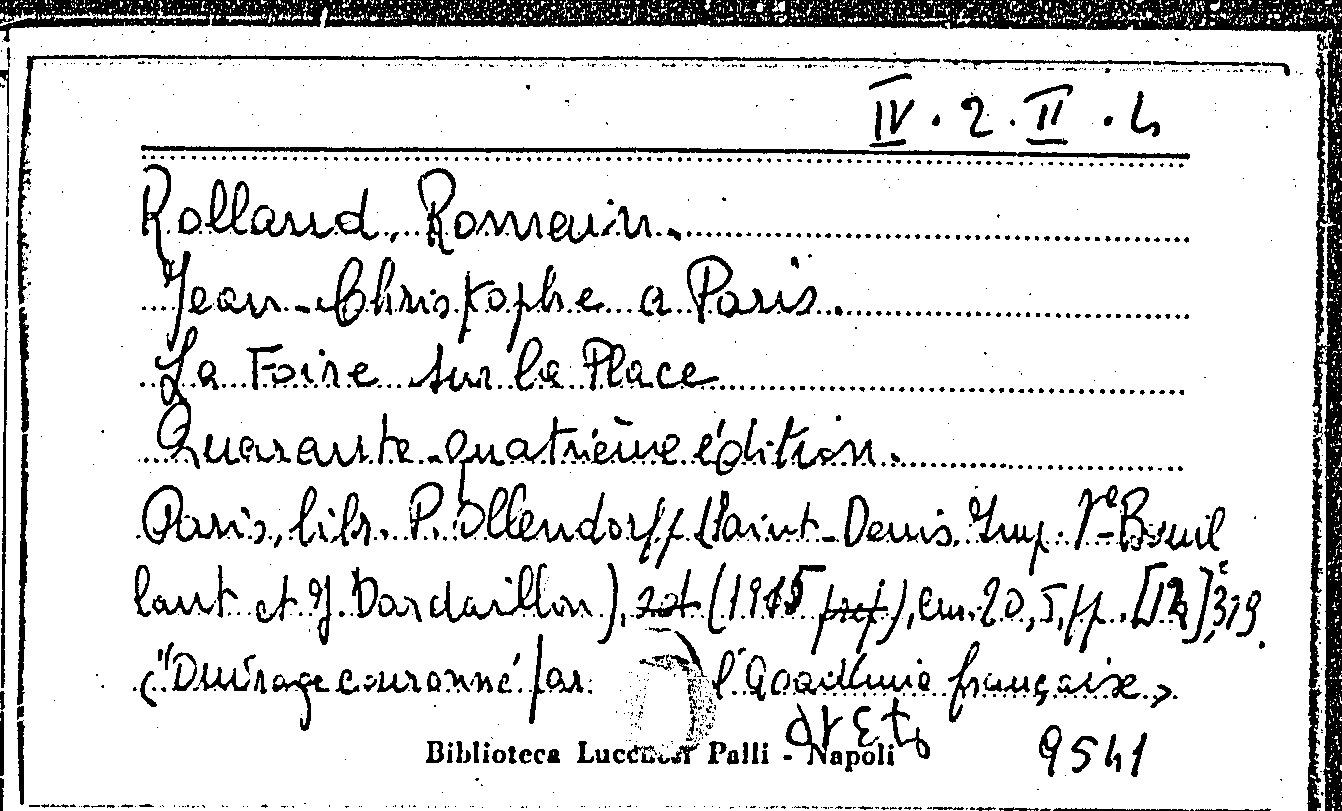 IV. 2. II. 4
Rolland, Romain.
Jean-Christophe a Paris.
La Foire sur la Place
Quarante-quatrième édition.
Paris, libr. P. Ollendorff (Saint-Denis, Imp. Vᵉ Bouil
lant et J. Dardaillon), (1915), cm. 20,5, pp. [12], 319.
("Ouvrage couronné par l'Académie française>
Biblioteca Lucchesi Palli - Napoli
9541